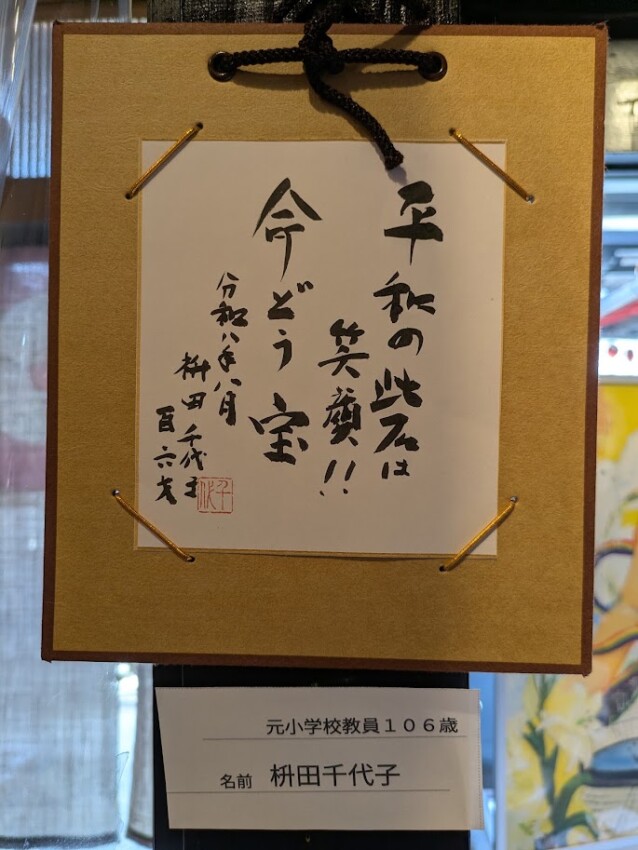 平和の砦は
笑顔!!
命どう宝
令和八年八月
枡田千代子
百六才
千代
元小学校教員１０６歳
名前 枡田千代子